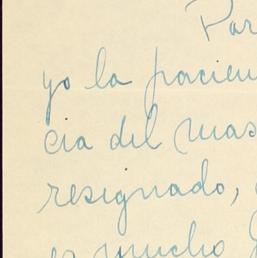 Par
yo la pacien
cia del mas
resignado,
es mucho